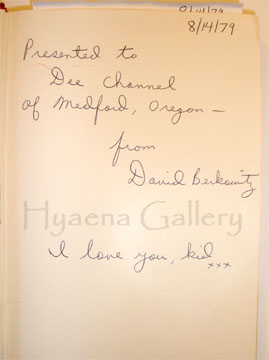 8/14/79
8/14/79
Presented to
Dee Channel
of Medford, Oregon —
from
David Berkowitz
Hyaena Gallery
I love you, kid
xxx